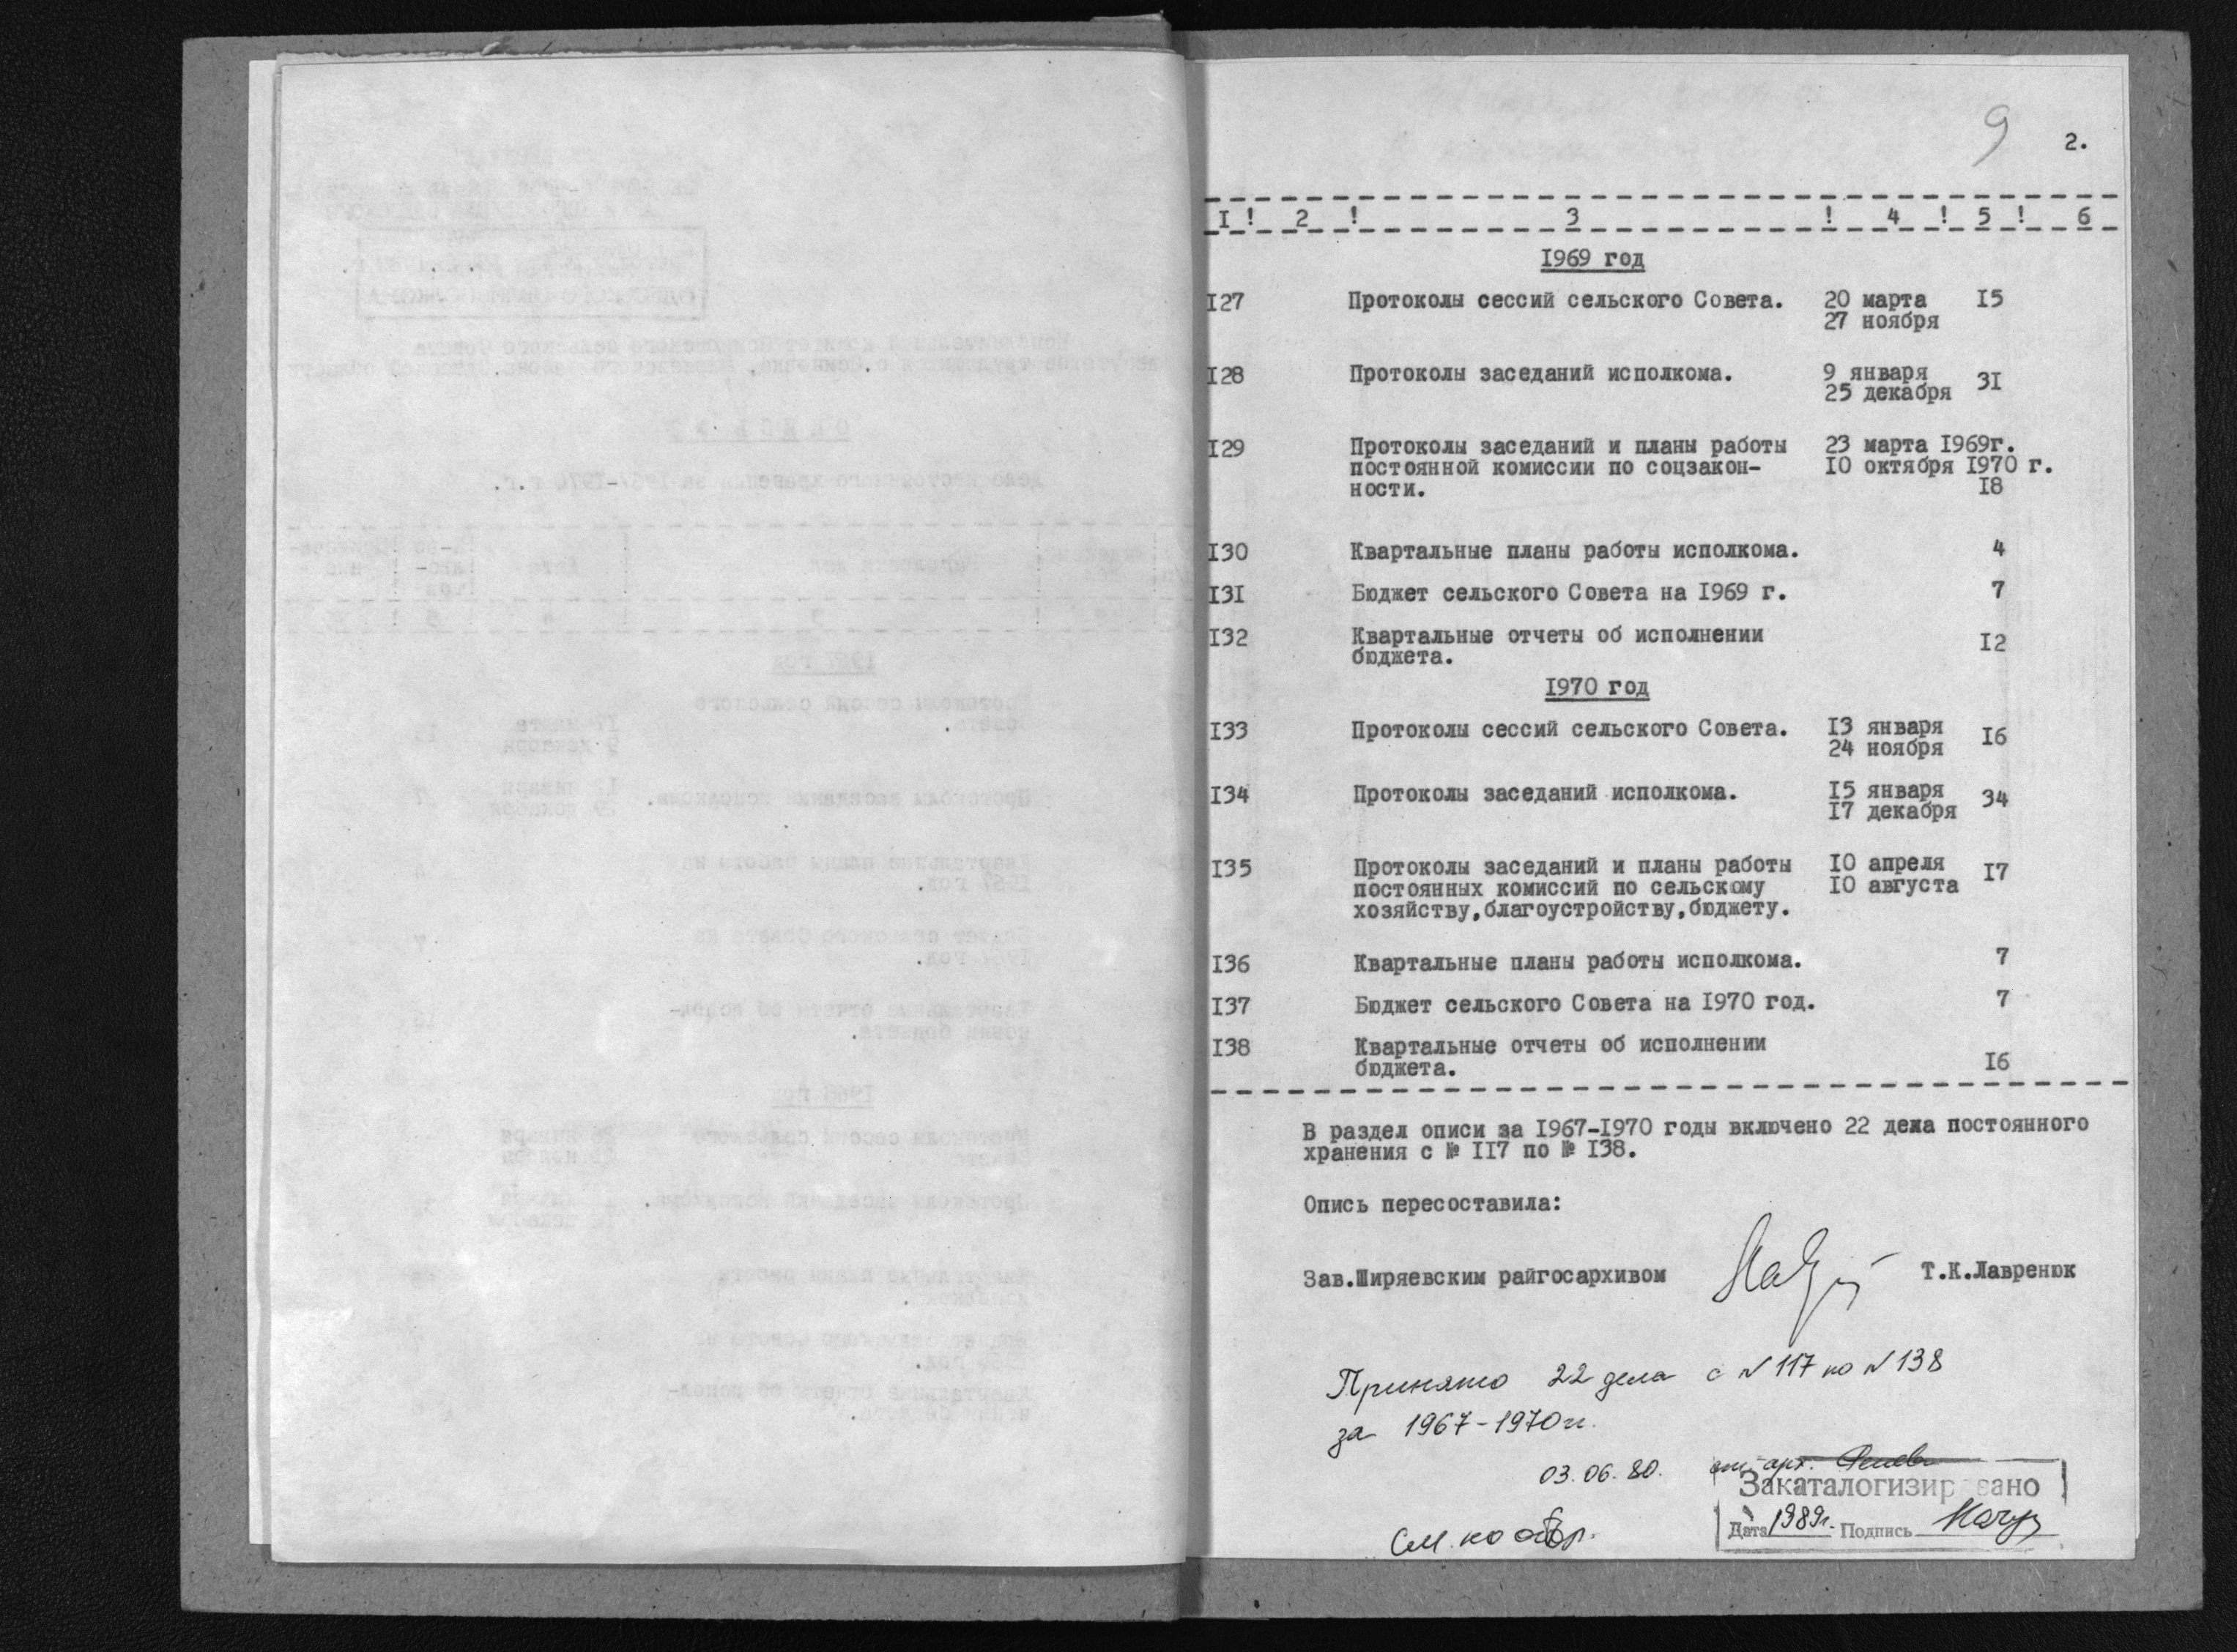 9
2.
I ! 2 ! 3 ! 4 ! 5 ! 6
I969 год
I27 Протоколы сессий сельского Совета. 20 марта I5
27 ноября
I28 Протоколы заседаний исполкома. 9 января 3I
25 декабря
I29 Протоколы заседаний и планы работы 23 марта I969г.
постоянной комиссии по соцзакон- I0 октября I970 г.
ности. I8
I30 Квартальные планы работы исполкома. 4
I3I Бюджет сельского Совета на I969 г. 7
I32 Квартальные отчеты об исполнении I2
бюджета.
I970 год
I33 Протоколы сессий сельского Совета. I3 января I6
24 ноября
I34 Протоколы заседаний исполкома. I5 января 34
I7 декабря
I35 Протоколы заседаний и планы работы I0 апреля I7
постоянных комиссий по сельскому I0 августа
хозяйству,благоустройству,бюджету.
I36 Квартальные планы работы исполкома. 7
I37 Бюджет сельского Совета на I970 год. 7
I38 Квартальные отчеты об исполнении
бюджета. I6
В раздел описи за I967-I970 годы включено 22 дела постоянного
хранения с № II7 по № I38.
Опись пересоставила:
Зав.Ширяевским райгосархивом Т.К.Лавренюк
Принято 22 дела с N 117 по N 138
за 1967-1970гг.
03.06.80. арх.
Закаталогизировано
Дата 1989г. Подпись
См. на обор.